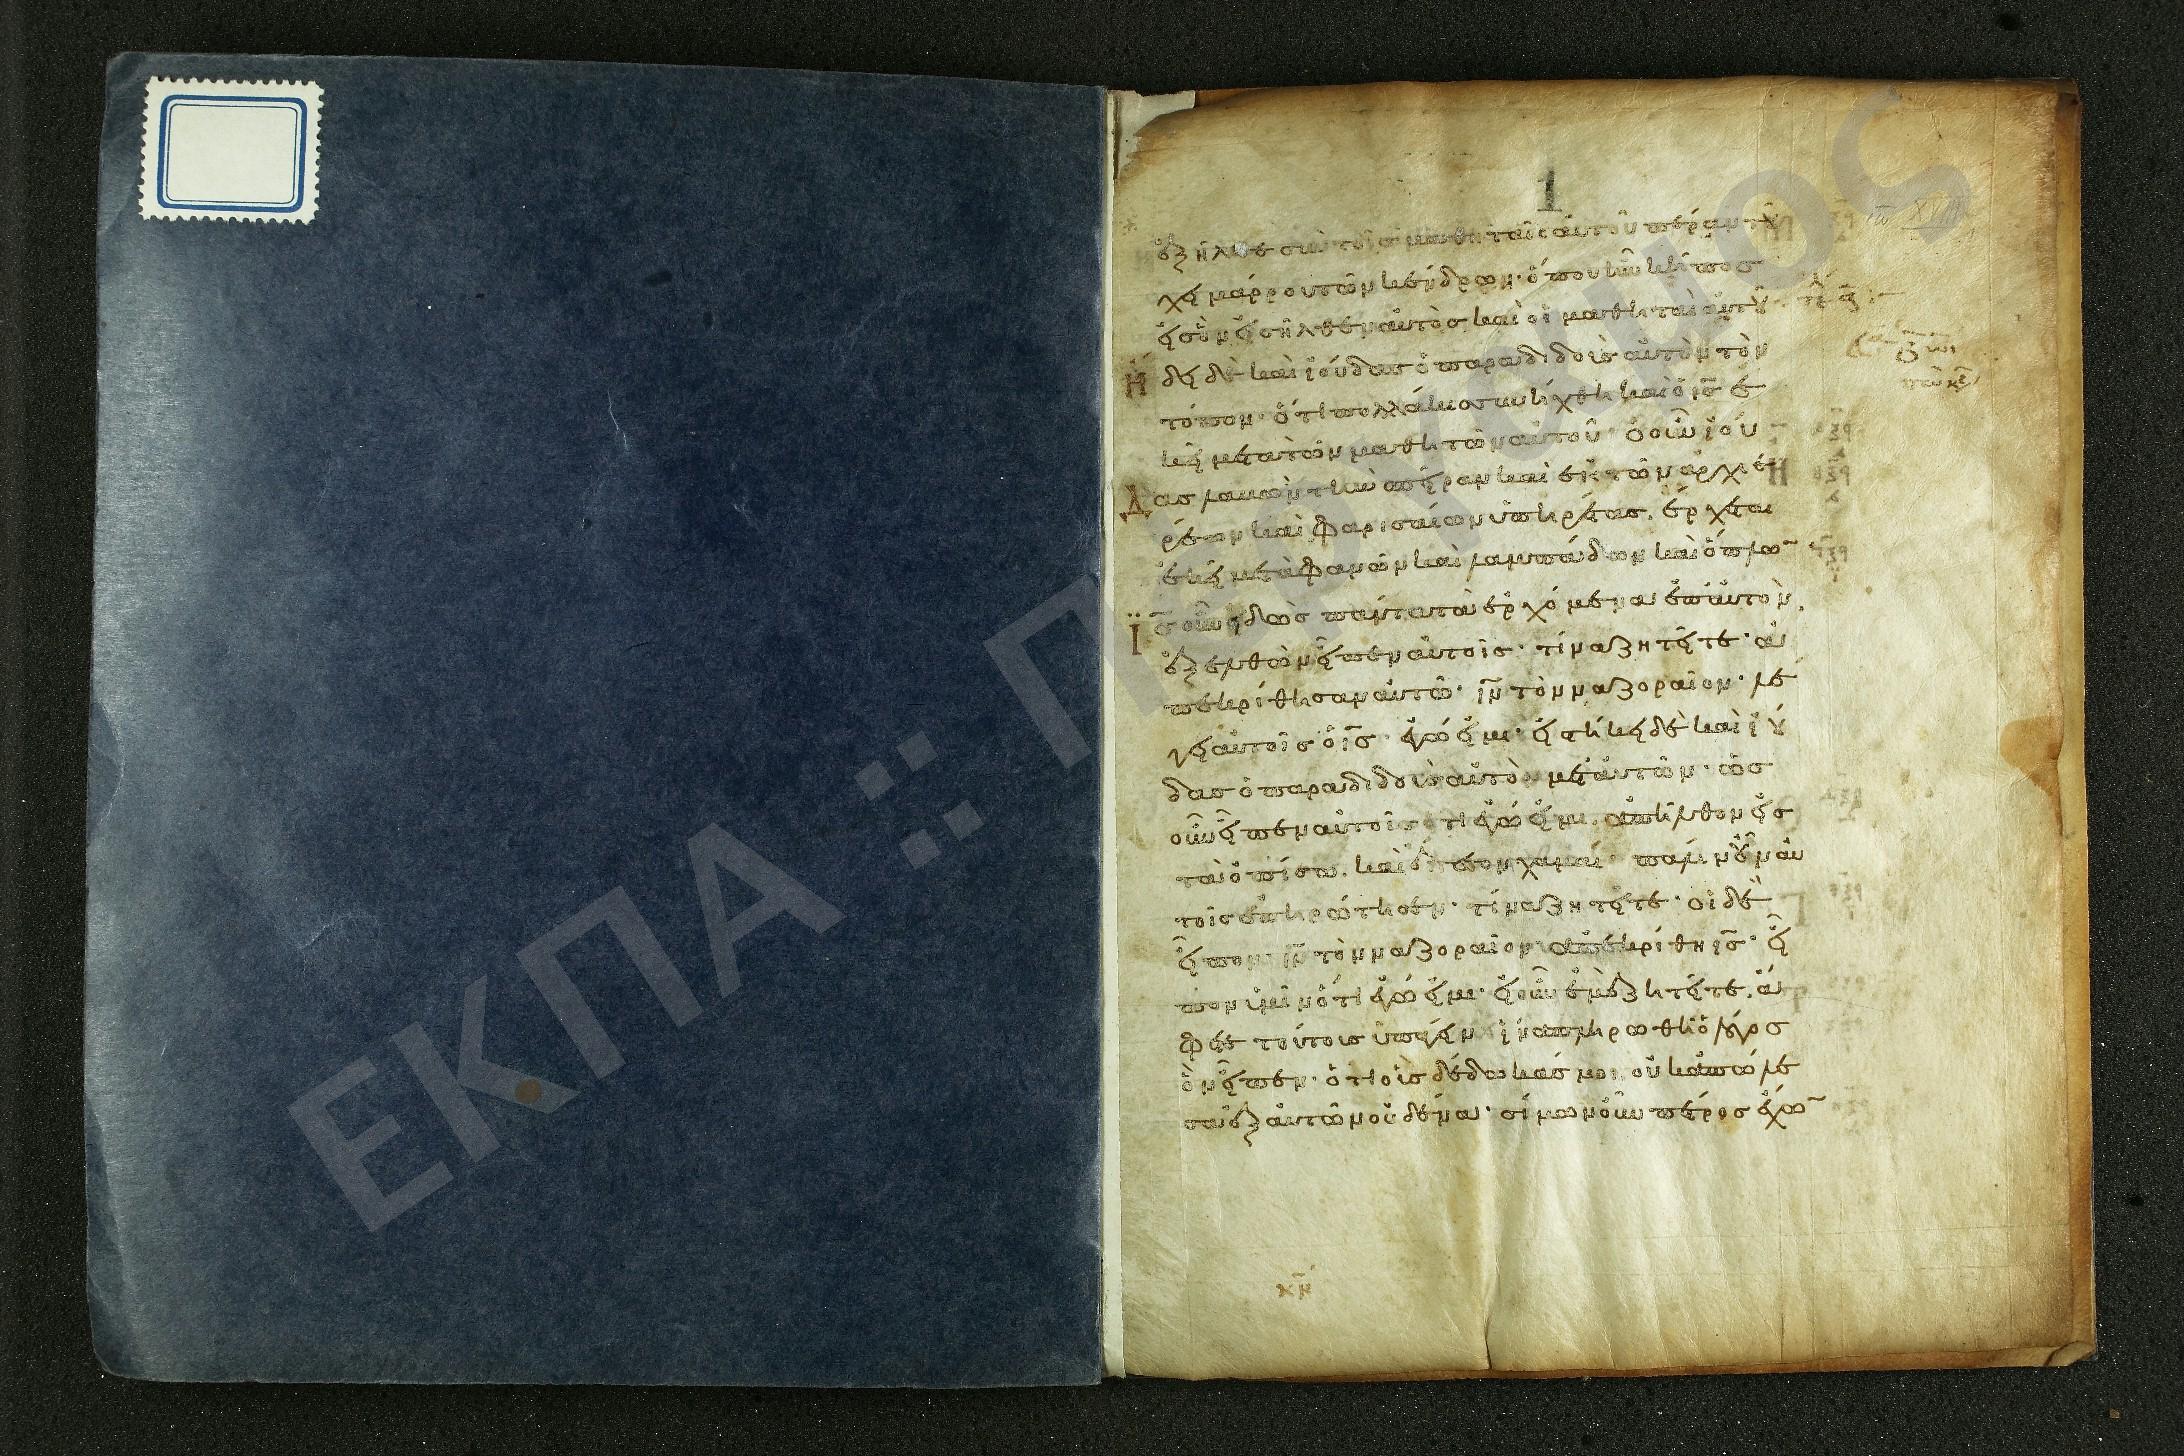 1
ἐξῆλθε σὺν τοῖς μαθηταῖς αὐτοῦ πέραν τοῦ
χειμάρρου τῶν κέδρων· ὅπου ἦν κῆπος
εἰς ὃν εἰσῆλθεν αὐτὸς καὶ οἱ μαθηταὶ αὐτοῦ
Ἤδει δὲ καὶ ἰούδας ὁ παραδιδοὺς αὐτὸν τὸν
τόπον· ὅτι πολλάκις συνήχθη καὶ ὁ ις ἐ
κεῖ μετὰ τῶν μαθητῶν αὐτοῦ· ὁ οὖν ἰού
Δας λαβὼν τὴν σπεῖραν καὶ ἐκ τῶν ἀρχιε
ρέων καὶ φαρισαίων ὑπηρέτας. ἔρχεται
ἐκεῖ μετὰ φανῶν καὶ λαμπάδων καὶ ὅπλω
Ϊς οὖν εἰδὼς πάντα τὰ ἐρχόμενα ἐπ αὐτὸν.
ἐξελθὼν εἶπεν αὐτοῖς· τίνα ζητεῖτε· ἀ
πεκρίθησαν αὐτῶ· ιν τὸν ναζοραῖον· λέ
γει αὐτοῖς ὁ ις· ἐγώ εἰμι· εἱστήκει δὲ καὶ ἰού
δας ὁ παραδιδοὺς αὐτὸν μετ αὐτῶν· ὡς
οὖν εἶπεν αὐτοῖς ὅτι ἐγώ εἰμι. ἀπῆλθον εἰς
τὰ ὀπίσω. καὶ ἔπεσον χαμαί· πάλιν οὖν αὐ
τοῖς ἐπηρώτησεν· τίνα ζητεῖτε· οἱ δὲ
εἶπον· ιν τὸν ναζοραῖον· ἀπεκρίθη ις· εἶ
πον ὑμῖν ὅτι ἐγώ εἰμι· εἰ οὖν ἐμὲ ζητεῖτε. ἄ
φετε τούτους ὑπάγειν· ἵνα πληρωθῆ ὁ λόγος
ὃν εἶπεν· ὅτι οὓς δέδωκάς μοι, οὐκ ἀπώλε
σα ἐξ αὐτῶν οὐδένα· σίμων οὖν πέτρος ἔχω
ΕΚΠΑ :: Πέργαμος